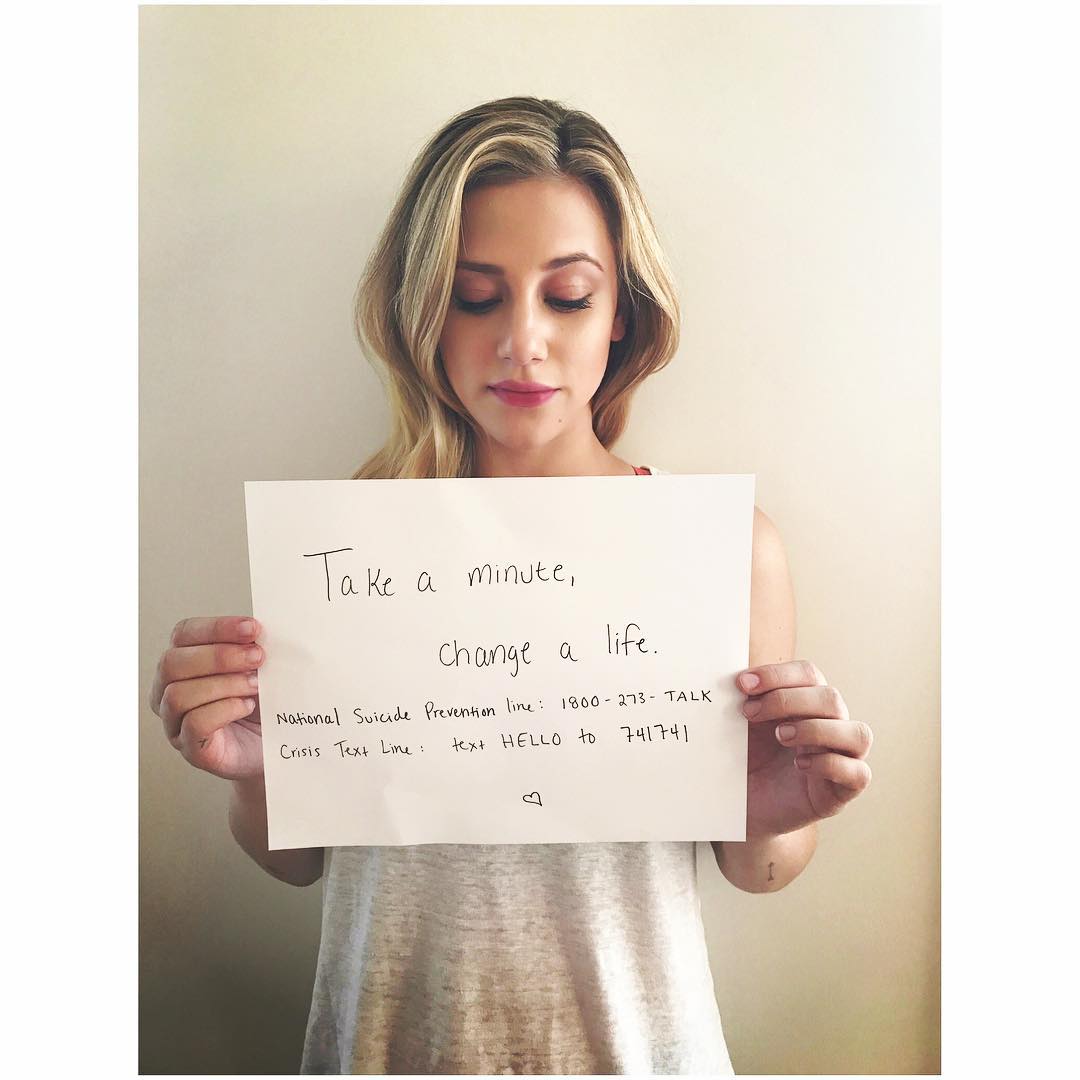 Take a minute,
change a life.
National Suicide Prevention line: 1800-273-TALK
Crisis Text Line: text HELLO to 741741